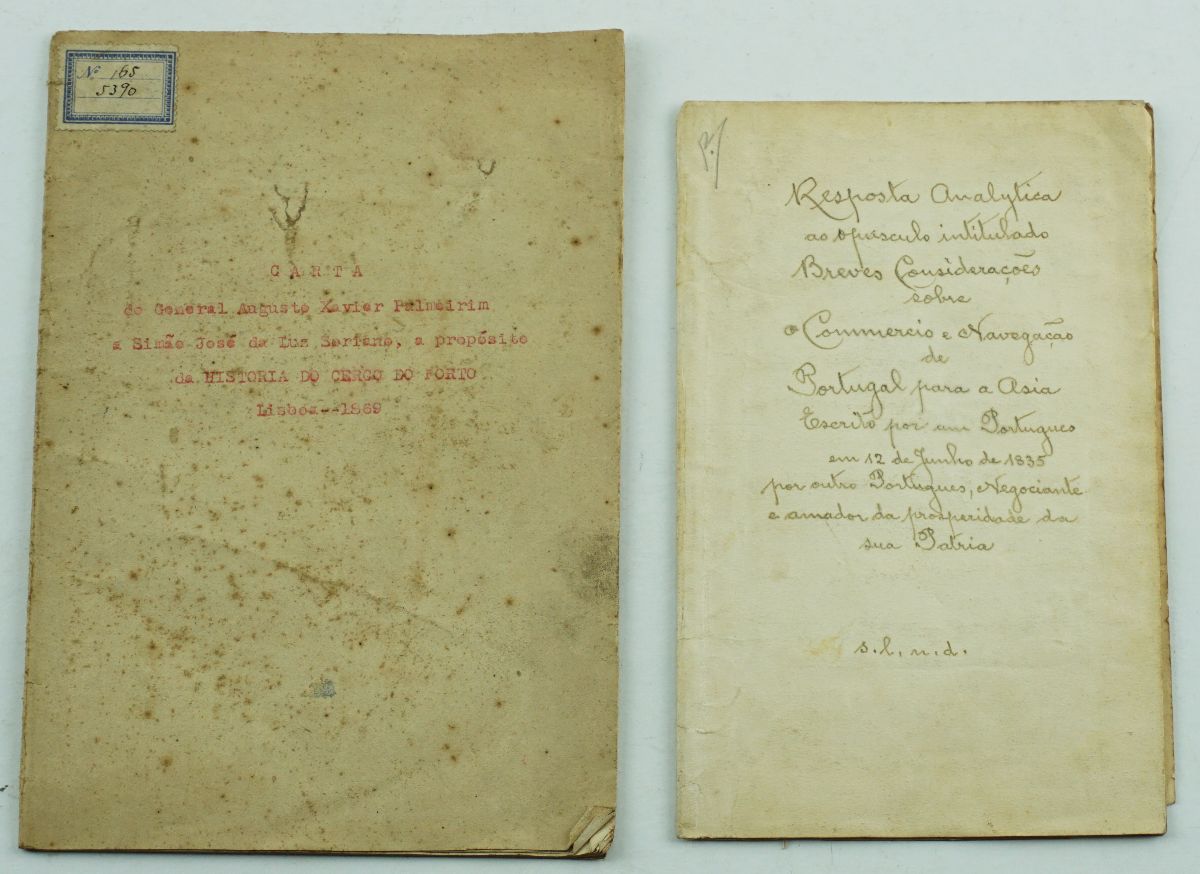 Nº 165
5390
CARTA
do General Augusto Xavier Palmeirim
a Simão José da Luz Soriano, a propósito
da HISTORIA DO CERCO DO PORTO
Lisboa--1869
P./
Resposta Analytica
ao opusculo intitulado
Breves Considerações
sobre
o Commercio e Navegação
de
Portugal para a Asia
Escrito por um Portugues
em 12 de Junho de 1835
por outro Portugues, Negociante
e amador da prosperidade da
sua Patria
s.l.n.d.